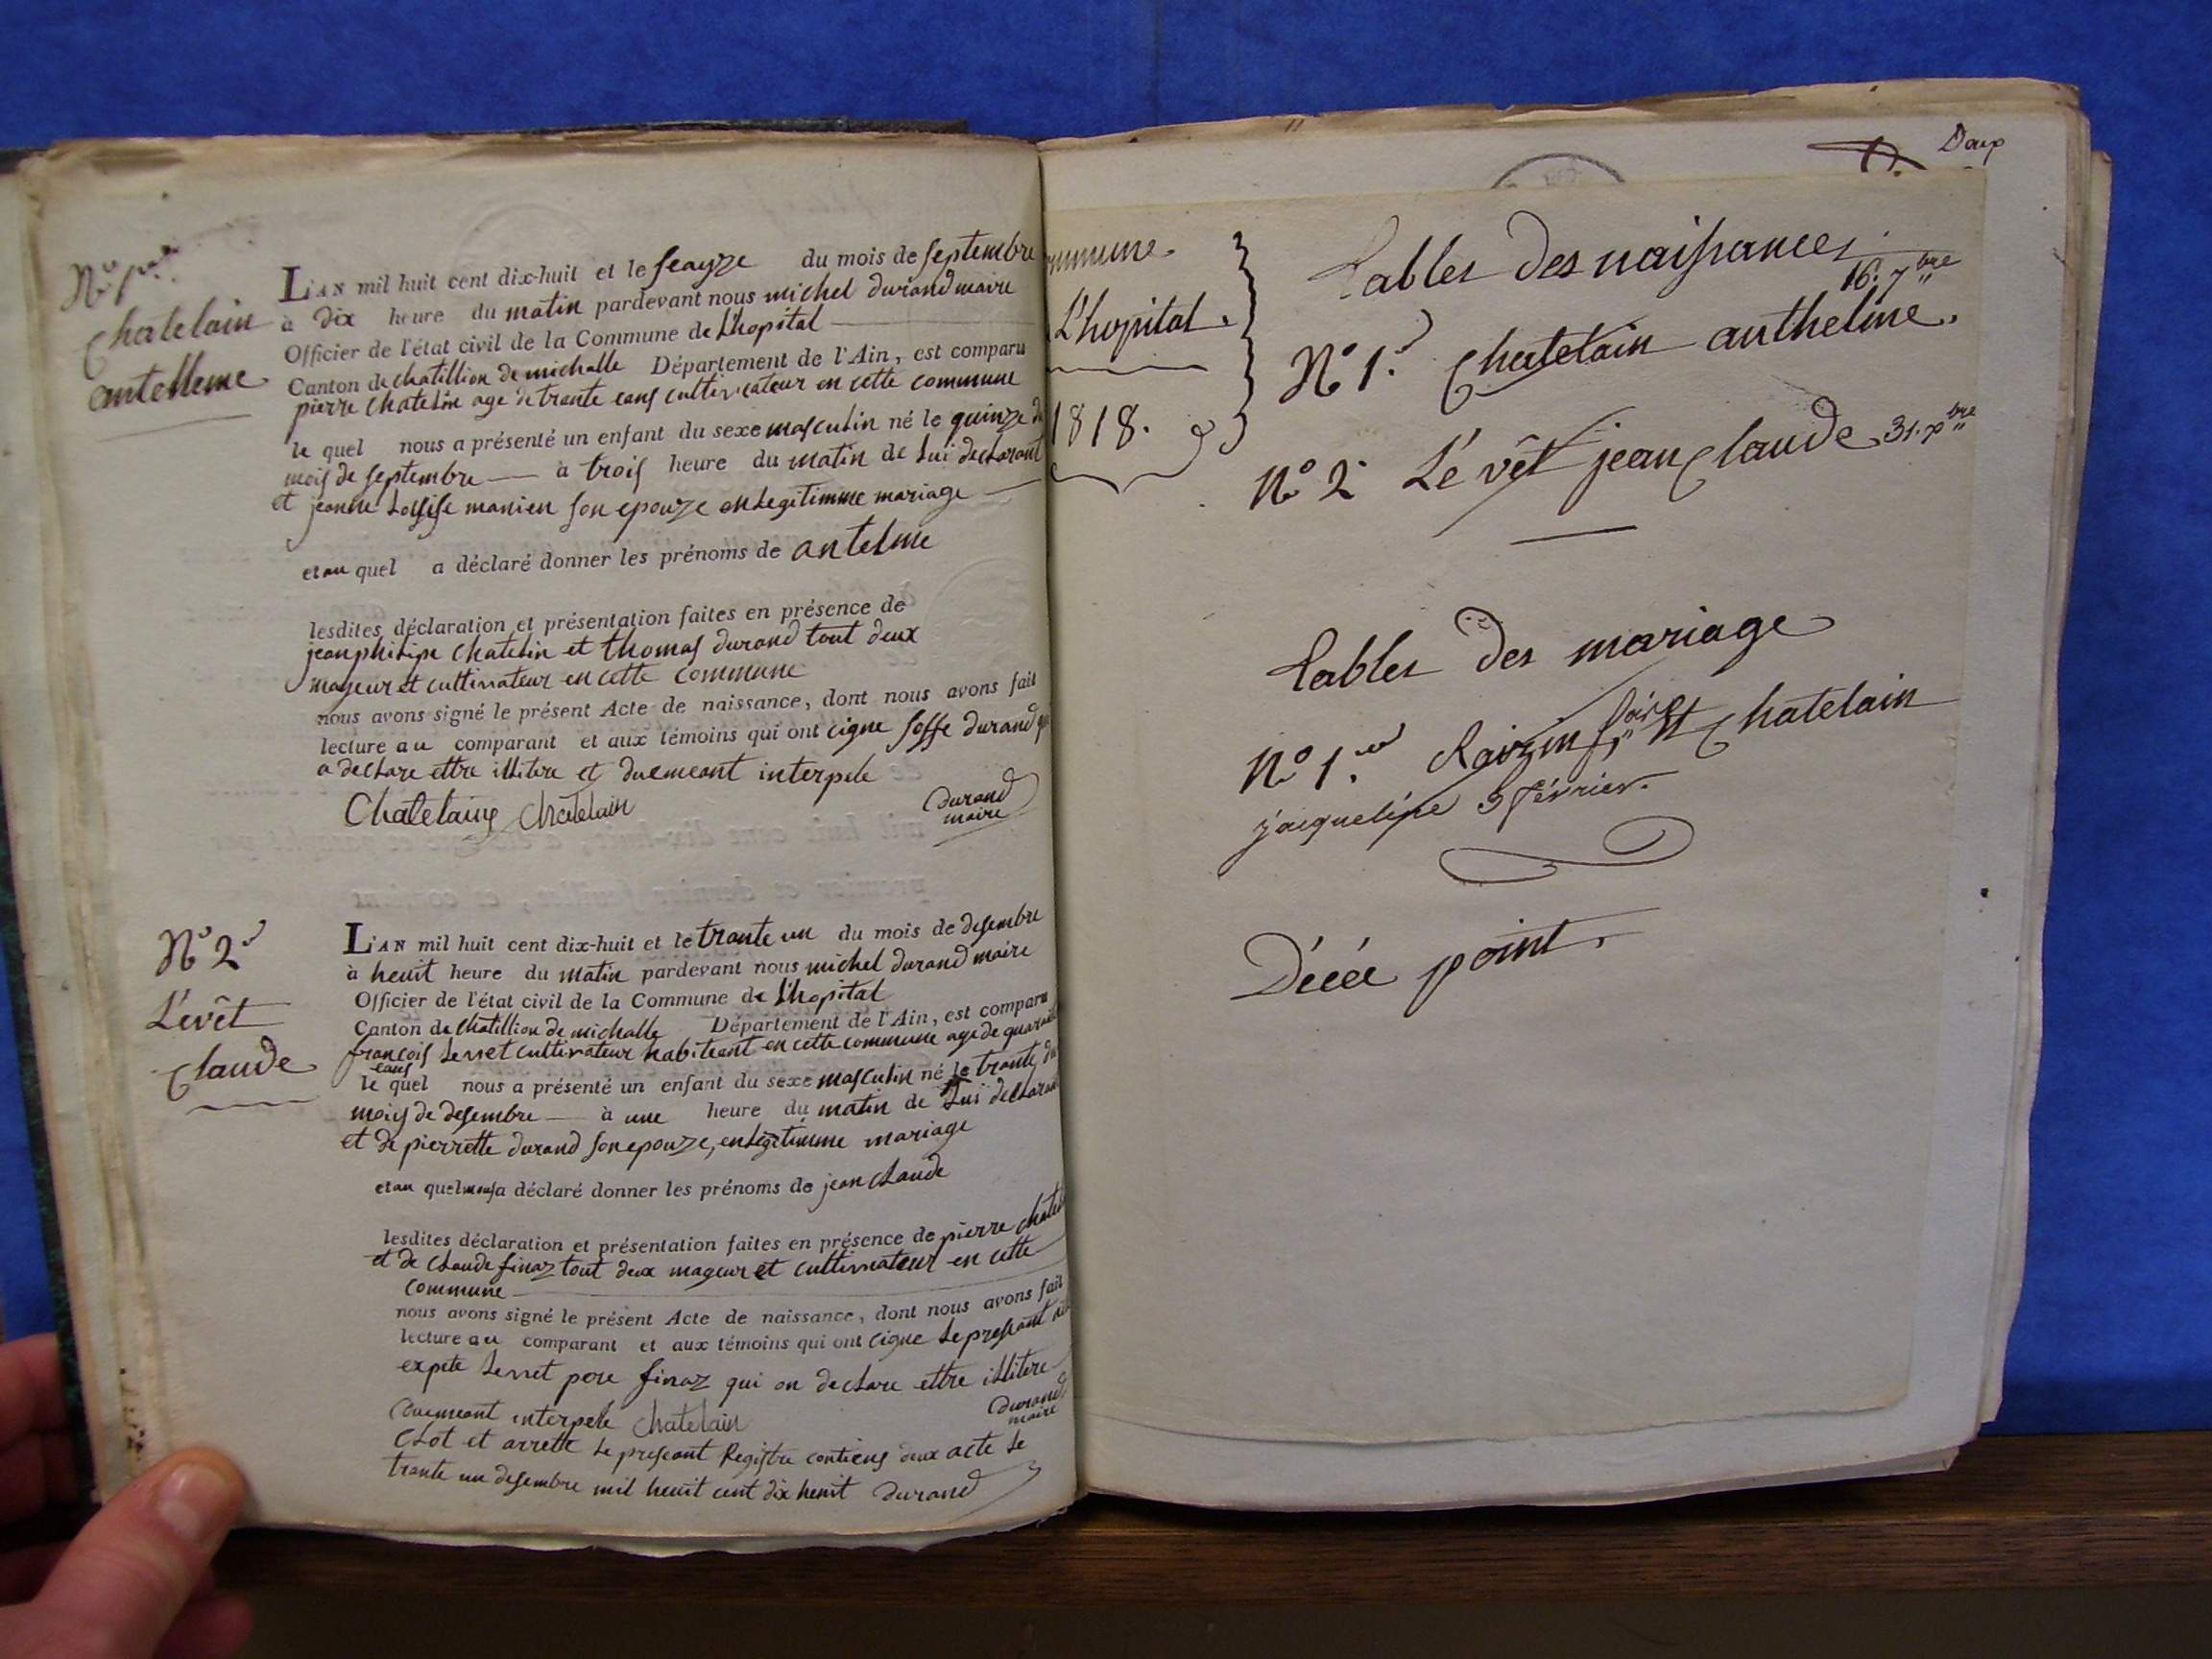 N.º 1.er
Chatelain
antelleme
L'AN mil huit cent dix-huit et le seayze du mois de septembre
à dix heure du matin pardevant nous michel durand maire
Officier de l'état civil de la Commune de L'hopital
Canton de chatillion de michalle Département de l'Ain, est comparu
pierre chatelin age de trante eans cultivateur en cette commune
le quel nous a présenté un enfant du sexe masculin né le quinze du
mois de septembre à trois heure du matin de Lui declarant
et jeanne Loisise manien son epouze en Legitimme mariage
et au quel a déclaré donner les prénoms de antelme
lesdites déclaration et présentation faites en présence de
jean philipe chatelin et thomas durand tout deux
mageur et cultivateur en cette commune
nous avons signé le présent Acte de naissance, dont nous avons fait
lecture au comparant et aux témoins qui ont cigne soffe durand qui
a declare ettre illitere et duemeant interpele
Chatelain chatelain durand
maire
N.º 2.d
L'evêt
Claude
L'AN mil huit cent dix-huit et le trante un du mois de desembre
à heuit heure du matin pardevant nous michel durand maire
Officier de l'état civil de la Commune de L'hopital
Canton de chatillion de michalle Département de l'Ain, est comparu
francois Levet cultivateur habiteant en cette commune age de quarante
eans
le quel nous a présenté un enfant du sexe masculin né le trante du
mois de desembre à une heure du matin de Lui declarant
et de pierrette durand son epouze, en Legitimme mariage
et au quel nous a déclaré donner les prénoms de jean claude
lesdites déclaration et présentation faites en présence de pierre chatelin
et de claude finaz tout deux mageur et cultivateur en cette
commune
nous avons signé le présent Acte de naissance, dont nous avons fait
lecture au comparant et aux témoins qui ont cigne Le preseant
expete Levet pere finaz qui on declare ettre illitere
duemeant interpele chatelain durand
maire
Clot et arrette Le preseant Registre contiens deux acte Le
trante un desembre mil heuit cent dix heuit durand
mmune
L'hopital.
1818.
Tables des naissances
16. 7bre
N.º 1.r Chatelain anthelme.
N.º 2 L'é vêt jean Claude 31. xbre
Tables des mariage
N.º 1.er Raizin et Chatelain
jacqueline 9 février.
Décée point.